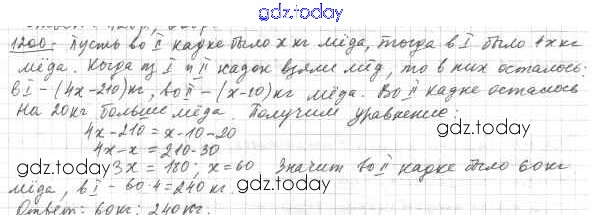 gdz.today
1200. Пусть во II кадке было x кг мёда, тогда в I было 4x кг
мёда. Когда из I и II кадок взяли мёд, то в них осталось:
в I - (4x-210) кг, во II - (x-10) кг мёда. Во II кадке осталось
на 20 кг больше мёда. Получим уравнение:
4x-210 = x-10-20
gdz.today
4x-x = 210-30
gdz.today
3x = 180; x=60 Значит во II кадке было 60 кг
gdz.today
мёда, в I - 60·4=240 кг.
Ответ: 60 кг; 240 кг.
gdz.today